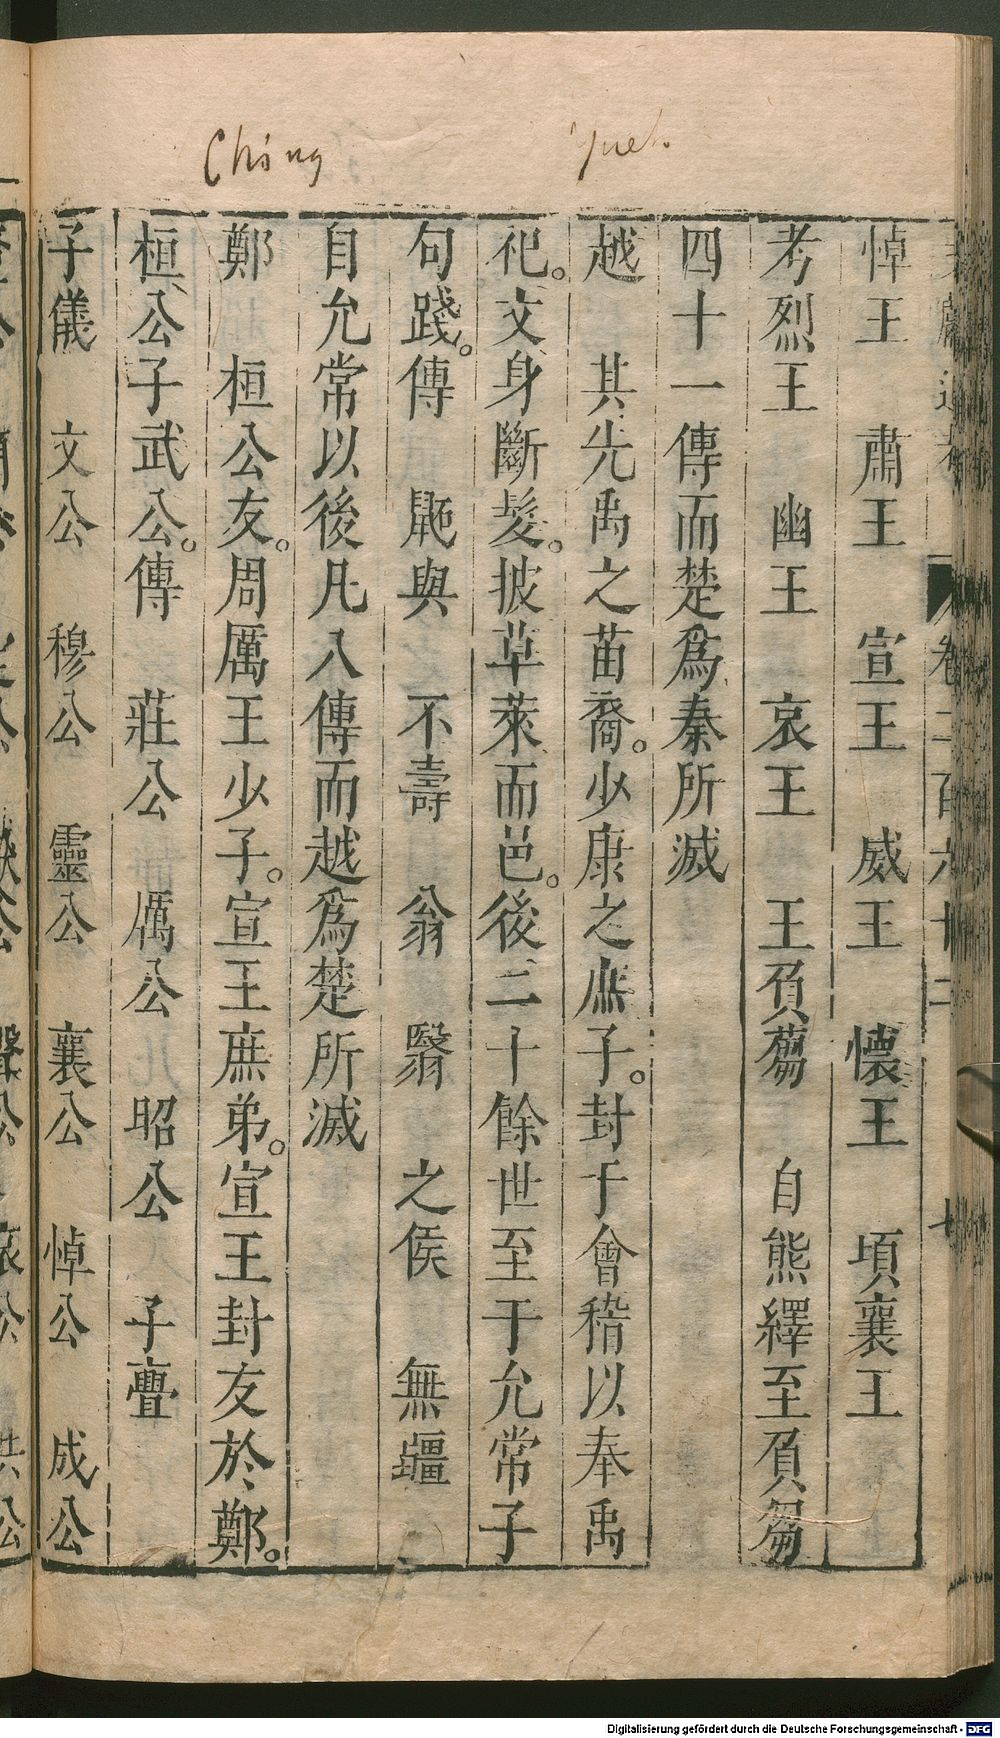 Chéng
Yueh.
悼王　肅王　宣王　威王　懷王　頃襄王
考烈王　幽王　哀王　王負蒭　自熊繹至負芻
四十一傳而楚爲秦所滅
越　其先禹之苗裔。少康之庶子。封于會稽以奉禹
祀。文身斷髮。披草萊而邑。後二十餘世至于允常子
句踐。傳　鼫與　不壽　翁　翳　之侯　無疆
自允常以後凡八傳而越爲楚所滅
鄭　桓公友。周厲王少子。宣王庶弟。宣王封友於鄭。
桓公子武公。傳　莊公　厲公　昭公　子亹
子儀　文公　穆公　靈公　襄公　悼公　成公
卷二百六十二
Digitalisierung gefördert durch die Deutsche Forschungsgemeinschaft - DFG